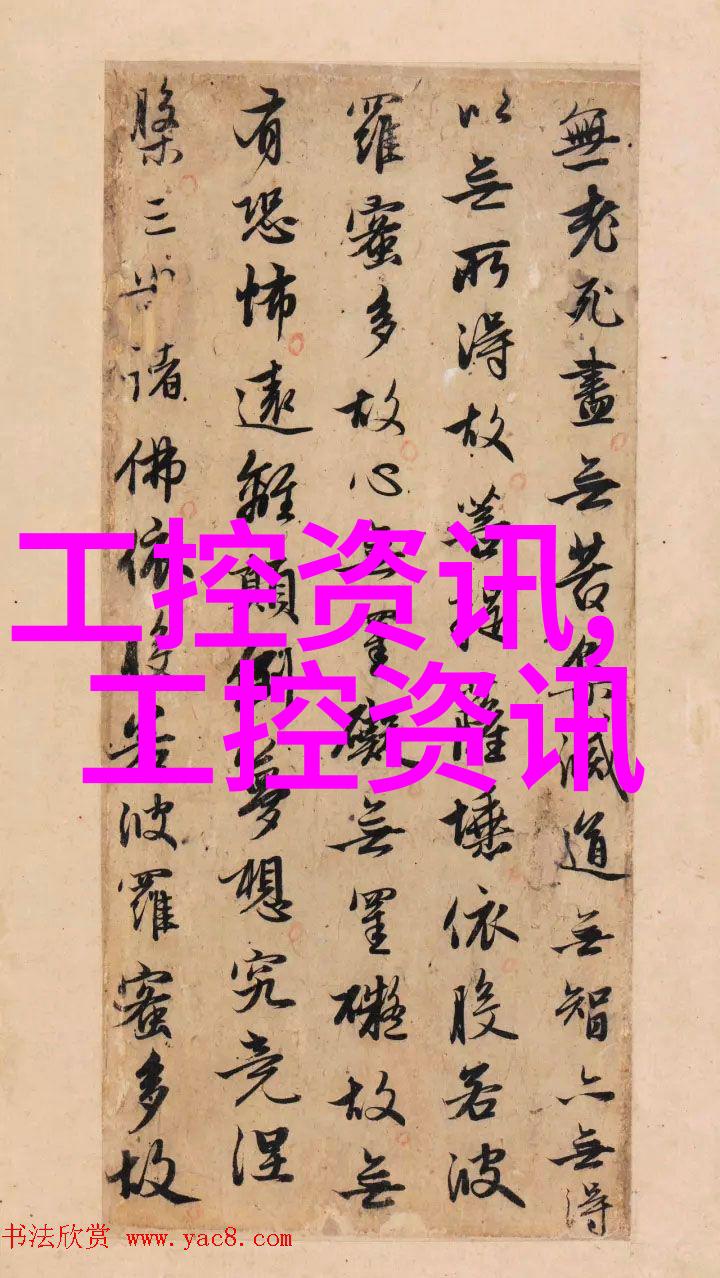 無老死盡無苦集滅道無智亦無得
以無所得故菩提薩埵依般若波
羅蜜多故心無罣礙無罣礙故無
有恐怖遠離顛倒夢想究竟涅
槃三世諸佛依般若波羅蜜多故
工控资讯,
工控资讯
书法欣赏 www.yac8.com